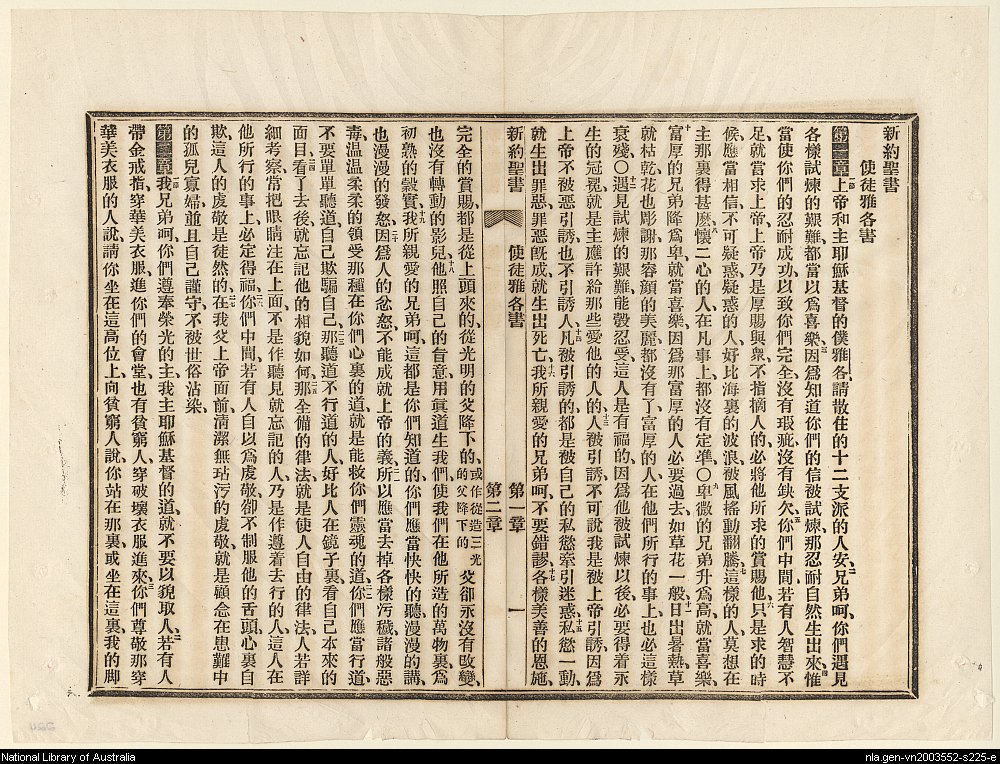 新約聖書
使徒雅各書
第一章 一節上帝和主耶穌基督的僕雅各請散住的十二支派的人安、二兄弟呵、你們遇見
各樣試煉的艱難都當以爲喜樂、三因爲知道你們的信被試煉那忍耐自然生出來、四惟
當使你們的忍耐成功以致你們完全沒有瑕疵沒有缺欠、五你們中間若有人智慧不
足、就當求上帝、上帝乃是厚賜與衆、不指摘人的、必將他所求的賞賜他、六只是求的時
候應當相信、不可疑惑、疑惑的人、好比海裏的波浪被風搖動翻騰、七這樣的人莫想在
主那裏得甚麽、八懷二心的人、在凡事上都沒有定準〇九卑微的兄弟升爲高、就當喜樂、
十富厚的兄弟降爲卑就當喜樂因爲那富厚的人必要過去如草花一般、十一日出暑熱草
就枯乾花也彫謝那容顏的美麗都沒有了富厚的人在他們所行的事上也必這樣
衰殘〇十二遇見試煉的艱難能彀忍受這人是有福的因爲他被試煉以後必要得着永
生的冠冕就是主應許給那些愛他的人的、十三人被引誘、不可說我是被上帝引誘、因爲
上帝不被惡引誘、也不引誘人、十四凡被引誘的、都是被自己的私慾牽引迷惑、十五私慾一動、
就生出罪惡、罪惡旣成、就生出死亡、十六我所親愛的兄弟呵、不要錯謬、十七各樣美善的恩施、
新約聖書 使徒雅各書 第一章 第二章 一
完全的賞賜、都是從上頭來的、從光明的父降下的、或作從造三光的父降下的 父卻永沒有改變、
也沒有轉動的影兒、十八他照自己的旨意用眞道生我們、使我們在他所造的萬物裏、爲
初熟的穀實、十九我所親愛的兄弟呵、這都是你們知道的、你們應當快快的聽、漫漫的講、
也漫漫的發怒、二十因爲人的忿怒、不能成就上帝的義、二一所以應當去掉各樣污穢諸般惡
毒、溫溫柔柔的領受那種在你們心裏的道就是能救你們靈魂的道、二二你們應當行道、
不要單單聽道、自己欺騙自己、二三那聽道不行道的人、好比人在鏡子裏看自己本來的
面目、二四看了去後、就忘記他的相貌如何、二五那全備的律法、就是使人自由的律法、人若詳
細考察、常把眼睛注在上面、不是作聽見就忘記的人、乃是作遵着去行的人、這人在
他所行的事上必定得福、二六你們中間若有人自以爲虔敬、卻不制服他的舌頭、心裏自
欺、這人的虔敬是徒然的、二七在我父上帝面前、淸潔無玷污的虔敬、就是顧念在患難中
的孤兒寡婦、並且自己謹守、不被世俗沾染、
第二章 一節我兄弟呵、你們遵奉榮光的主我主耶穌基督的道、就不要以貌取人、二若有人
帶金戒指、穿華美衣服、進你們的會堂、也有貧窮人、穿破壞衣服進來、三你們尊敬那穿
華美衣服的人說、請你坐在這高位上、向貧窮人說、你站在那裏、或坐在這裏、我的脚
National Library of Australia
nla.gen-vn2003552-s225-e